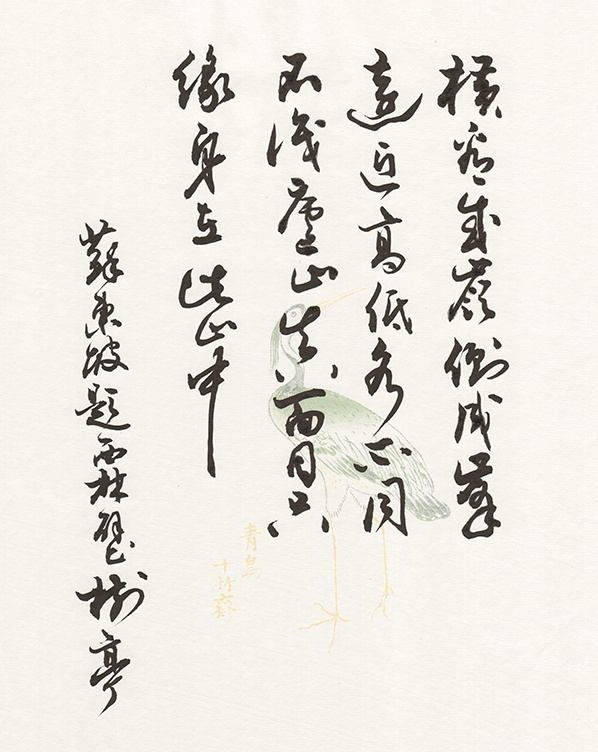 橫看成嶺側成峯
遠近高低各不同
不識廬山真面目只
緣身在此山中
蘇東坡題西林壁 樹亭
青鳥
十竹齋